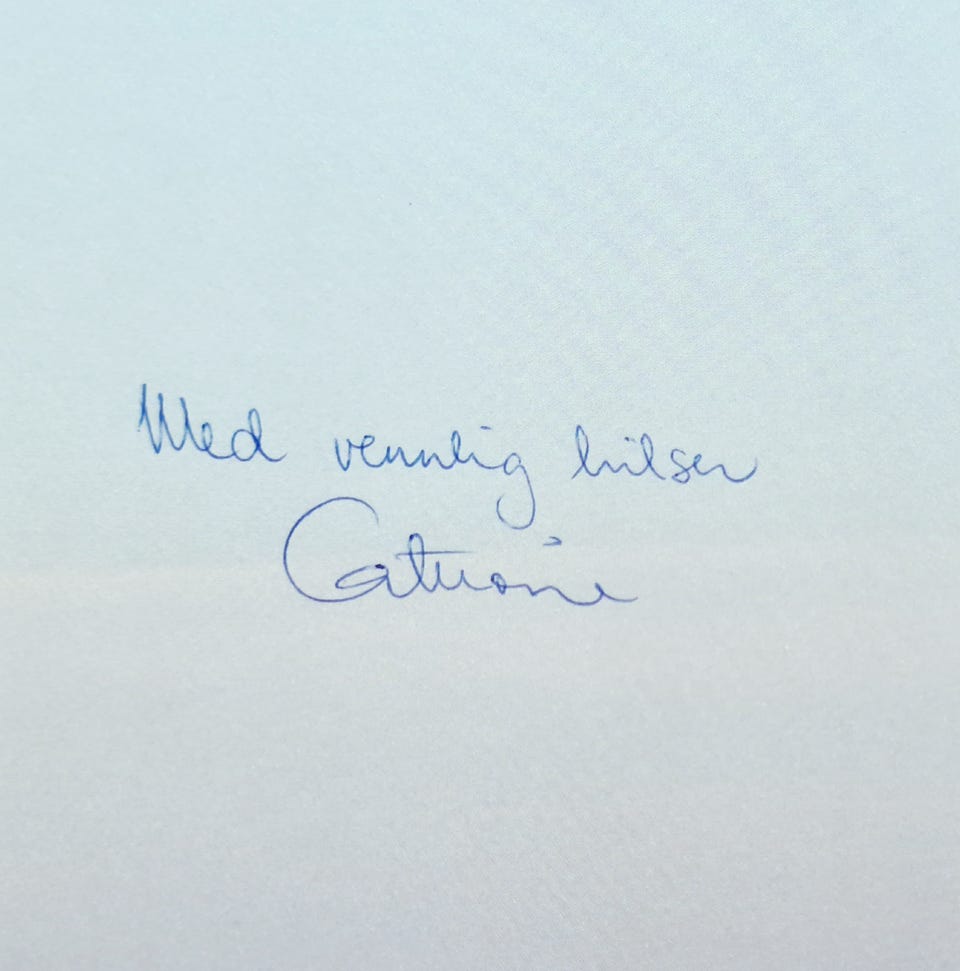 Med vennlig hilsen
Catrine